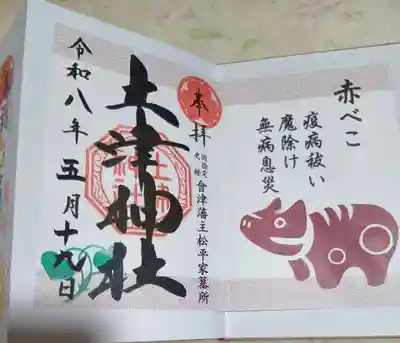 赤べこ
疫病祓い
魔除け
無病息災
奉拝
国指定
史蹟
會津藩主松平家墓所
土津神社
令和八年五月十九日